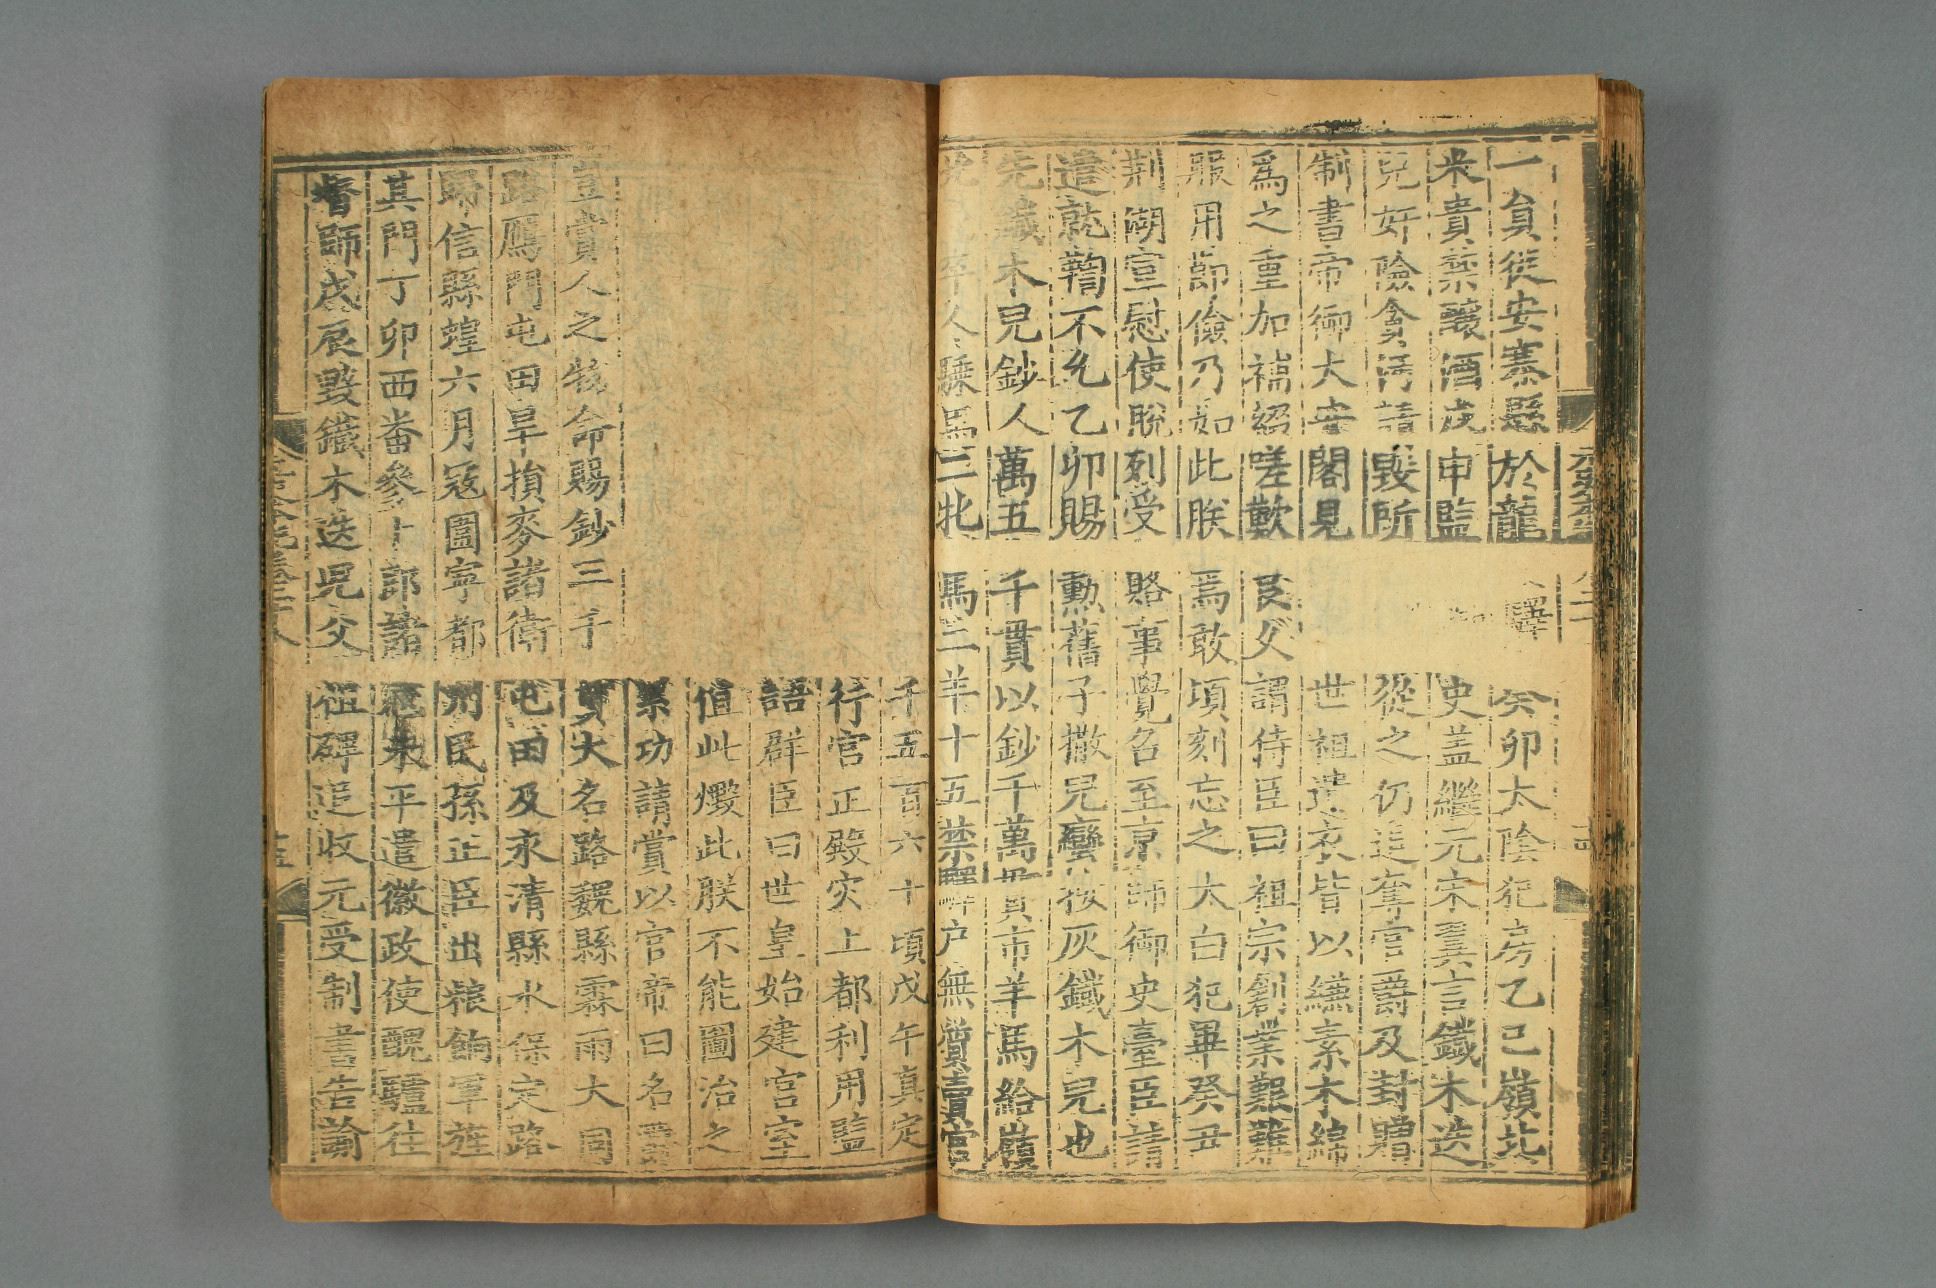 一員從安寨縣於龍 驛 癸卯太陰犯房乙巳嶺北
米貴禁釀酒戊申監 史蓋繼元宋翼言鐵木迭
兒奸險貪汚請毀所 從之仍追奪官爵及封贈
制書帝御大安閣見 世祖遺衣皆以縑素木綿
爲之重加補綴嗟歎良久謂侍臣曰祖宗創業艱難
服用節儉乃如此朕焉敢頃刻忘之太白犯畢癸丑
荆湖宣慰使脫列受賂事覺召至京師御史臺臣請
遣就鞫不允乙卯賜勳舊子撒兒蠻按灰鐵木兒也
先鐵木兒鈔人萬五千貫以鈔千萬貫市羊馬給嶺
北 人騍馬二牝馬二羊十五禁驛戶無質賣官
千五百六十頃戊午真定
行宮正殿灾上都利用監
語群臣曰世皇始建宮室
值此燬此朕不能圖治之
累功請賞以官帝曰名爵
豈賞人之物命賜鈔三千貫大名路魏縣霖雨大同
路鴈門屯田旱損麥諸衛屯田及永清縣水保定路
歸信縣蝗六月寇圍寧都州民孫正臣出粮餉軍旌
其門丁卯西番參卜郎諸寇未平遣徽政使醜驢往
督師戊辰毀鐵木迭兒父祖碑追收元受制書告諭